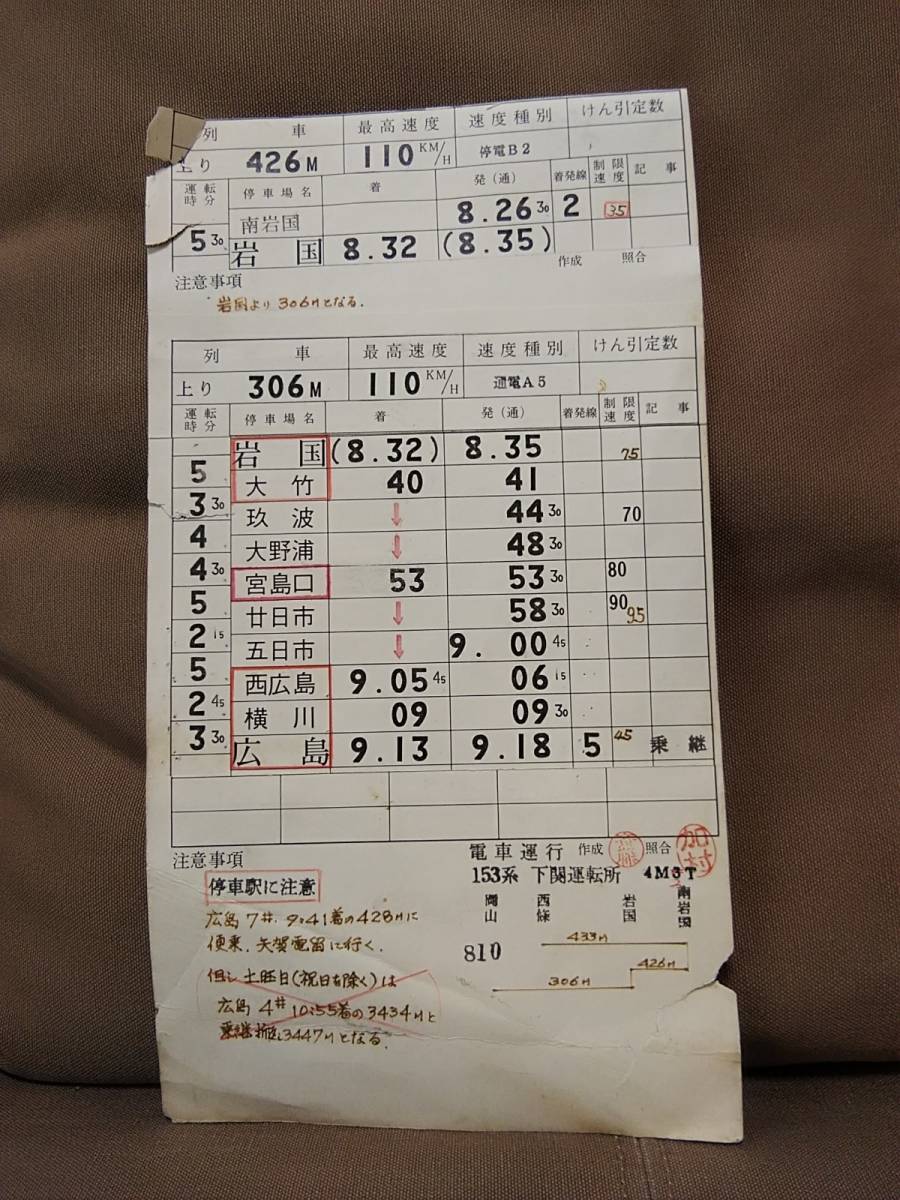 列 車 最高速度 速度種別 けん引定数
上り 426M 110KM/H 停電B2
運転時分 停車場名 着 発(通) 着発線 制限速度 記事
南岩国 8.26 30 2 35
5 30 岩国 8.32 (8.35)
作成 照合
注意事項
岩国より306Mとなる.
列 車 最高速度 速度種別 けん引定数
上り 306M 110KM/H 通電A5
運転時分 停車場名 着 発(通) 着発線 制限速度 記事
岩国 (8.32) 8.35 75
5 大竹 40 41
3 30 玖波 ↓ 44 30 70
4 大野浦 ↓ 48 30
4 30 宮島口 53 53 30 80
5 廿日市 ↓ 58 30 90 95
2 15 五日市 ↓ 9.00 45
5 西広島 9.05 45 06 15
2 45 横川 09 09 30
3 30 広島 9.13 9.18 5 45 乗継
注意事項
電車運行 作成 照合 加村
停車駅に注意
153系 下関運転所 4M3T
岡山 西條 岩国 南岩国
広島7#. 9:41着の428Mに
便乗. 矢賀電留に行く.
810
433M
426M
306M
但し土曜日(祝日を除く)は
広島4# 10:55着の3434Mと
3447Mとなる.